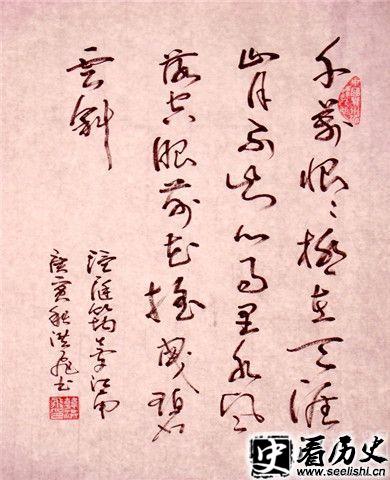 千萬恨〻極在天涯
山月不知心事里水風
落空眼前花搖曳碧
雲斜
温庭筠夢江南
庚寅秋洪書
史看历史
www.seelishi.cn